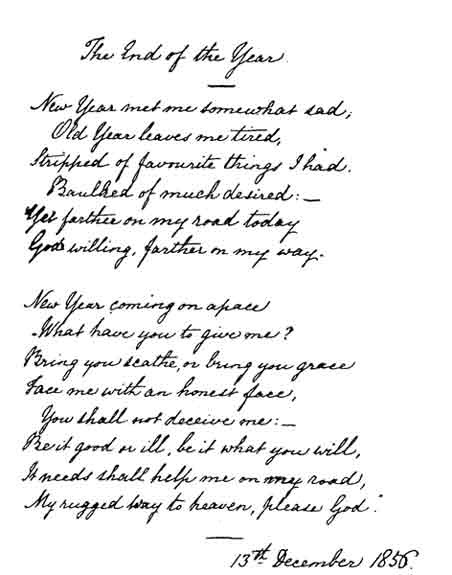 The End of the Year.
New Year met me somewhat sad;
Old Year leaves me tired,
Stripped of favourite things I had.
Baulked of much desired:—
Yet farther on my road today
God willing, farther on my way.
New Year coming on apace
What have you to give me?
Bring you scathe, or bring you grace
Face me with an honest face,
You shall not deceive me:—
Be it good or ill, be it what you will,
It needs shall help me on my road,
My rugged way to heaven, please God.
13th December 1856.